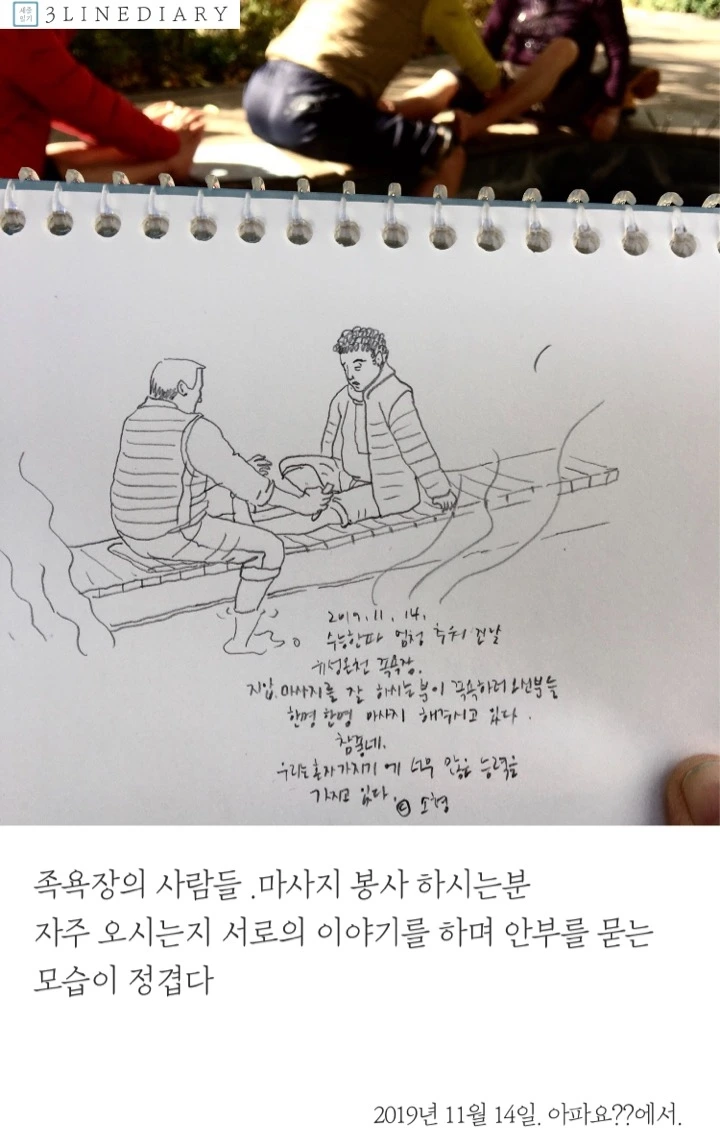 세줄
일기
3LINEDIARY
2019. 11. 14.
수능한파 엄청 추워진날
유성온천 족욕장.
지압.마사지를 잘 하시는분이 족욕하러 오신분들
한명 한명 마사지 해주시고 있다.
참 좋네.
우리는 혼자 가지기에 너무 많은 능력을
가지고 있다. ⓒ 소형
족욕장의 사람들 .마사지 봉사 하시는분
자주 오시는지 서로의 이야기를 하며 안부를 묻는
모습이 정겹다
2019년 11월 14일. 아파요??에서.